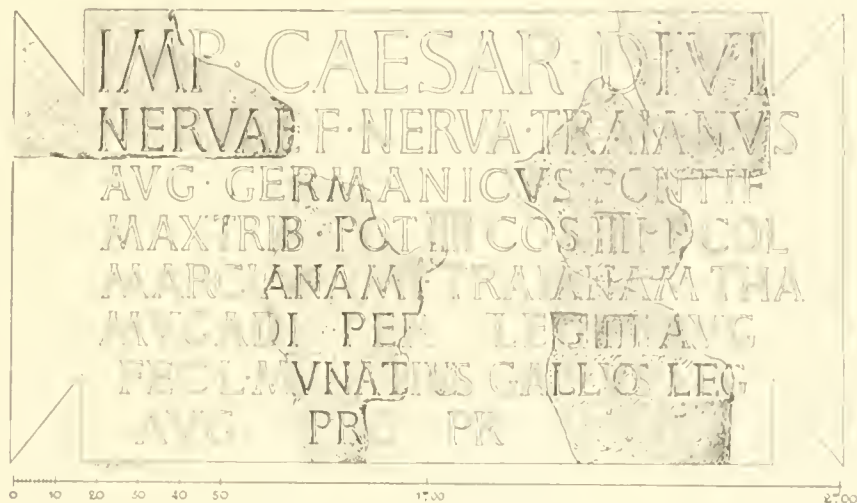 IMP · CAESAR · DIVI
NERVAE F · NERVA · TRAIANVS
AVG · GERMANICVS · PONTIF
MAX TRIB · POT IIII COS III P P COL
MARCIANAM TRAIANAM THA
MVGADI PER LEG III AVG
FEC L · MVNATIVS GALLVS LEG
AVG PR PR
0 10 20 30 40 50 1.00 2.00